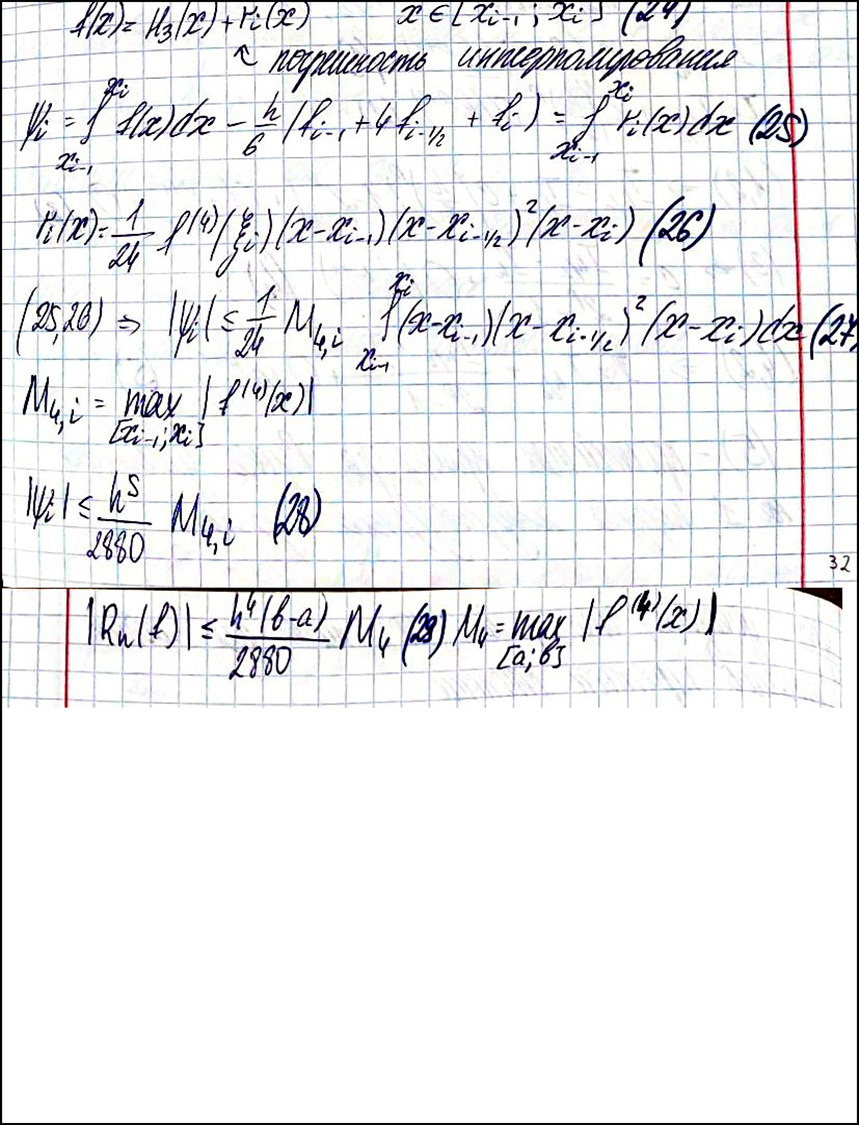 f(x) = H₃(x) + rᵢ(x) x ∈ [xᵢ₋₁; xᵢ] (24)
↖ погрешность интерполирования
ψᵢ = ∫ₓᵢ₋₁^xᵢ f(x)dx − h/6 (fᵢ₋₁ + 4fᵢ₋₁/₂ + fᵢ) = ∫ₓᵢ₋₁^xᵢ rᵢ(x)dx (25)
rᵢ(x) = 1/24 f⁽⁴⁾(ξᵢ)(x−xᵢ₋₁)(x−xᵢ₋₁/₂)²(x−xᵢ) (26)
(25,26) ⇒ |ψᵢ| ≤ 1/24 M₄,ᵢ ∫ₓᵢ₋₁^xᵢ (x−xᵢ₋₁)(x−xᵢ₋₁/₂)²(x−xᵢ)dx (27)
M₄,ᵢ = max [xᵢ₋₁;xᵢ] |f⁽⁴⁾(x)|
|ψᵢ| ≤ h⁵/2880 M₄,ᵢ (28)
32
|Rₙ(f)| ≤ h⁴(b−a)/2880 M₄ (29) M₄ = max [a;b] |f⁽⁴⁾(x)|